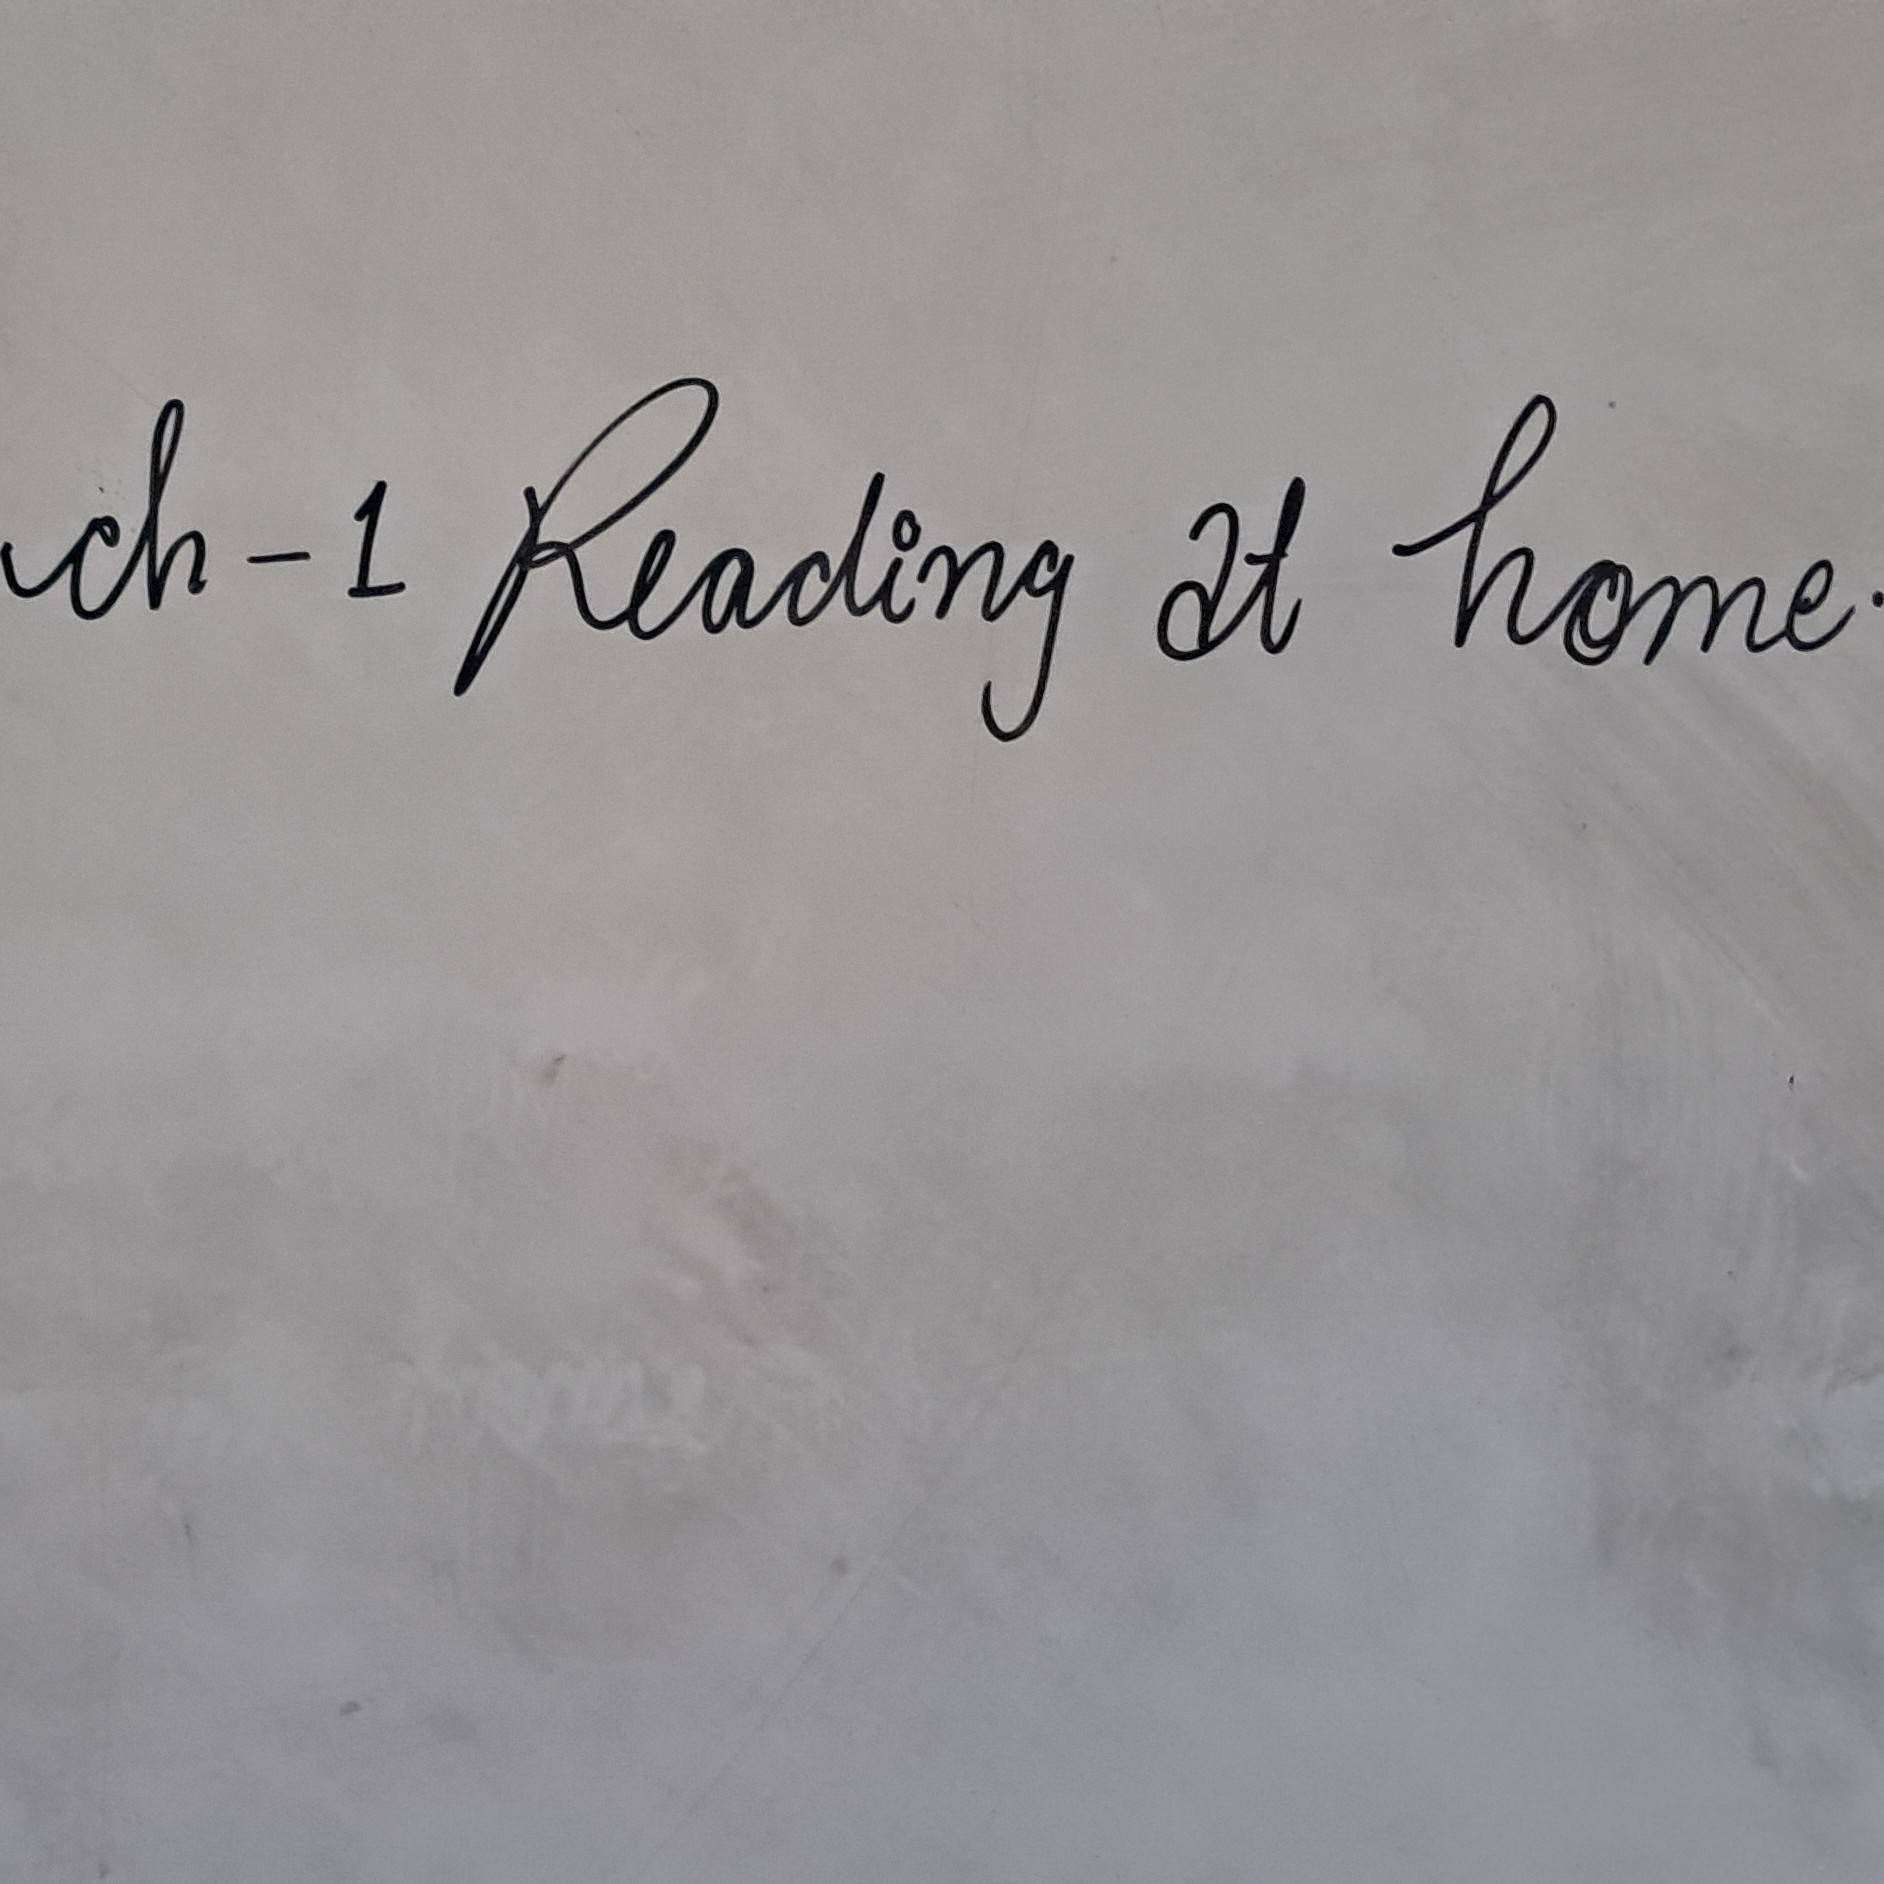 ch-1 Reading at home.